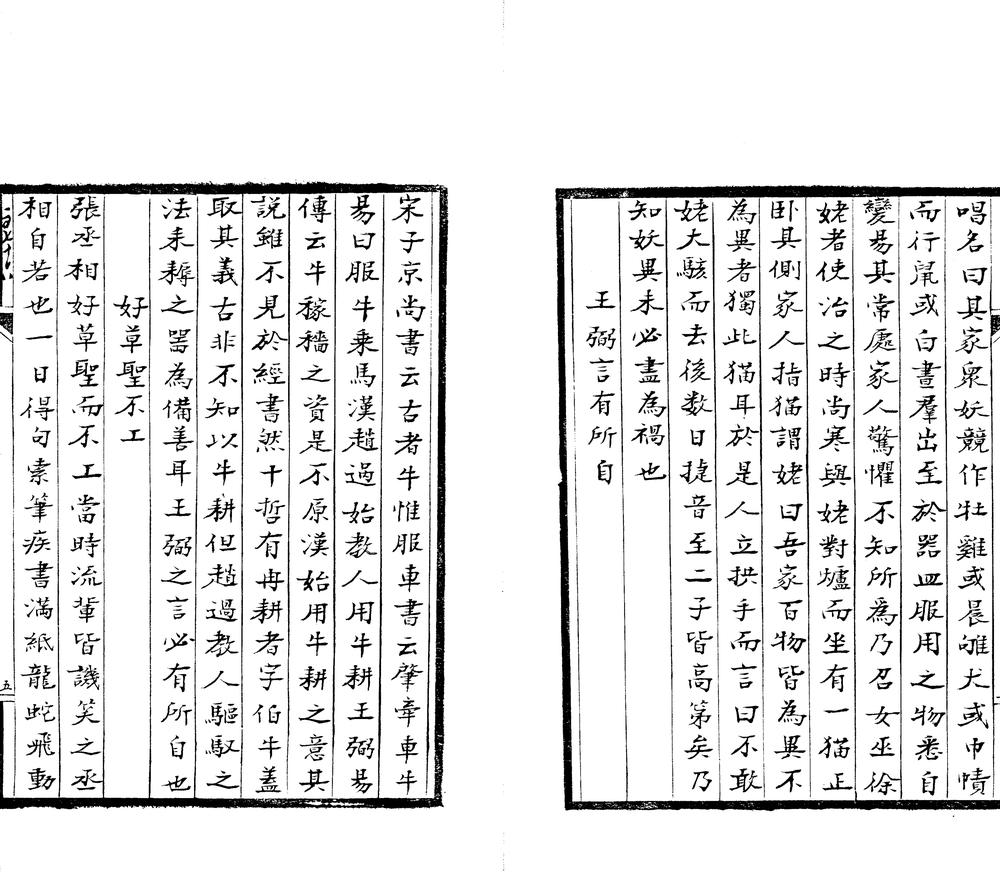 唱名曰其家衆妖競作牡雞或晨雊犬或巾幘
而行鼠或白晝羣出至於器皿服用之物悉自
變易其常處家人驚懼不知所為乃召女巫徐
姥者使冶之時尚寒與姥對爐而坐有一猫正
卧其側家人指猫謂姥曰吾家百物皆為異不
為異者獨此猫耳於是人立拱手而言曰不敢
姥大駭而去後数日㨗音至二子皆高第矣乃
知妖異未必盡為禍也
王弼言有所自
宋子京尚書云古者牛惟服車書云肇牽車牛
易曰服牛乗馬漢趙過始教人用牛耕王弼易
傳云牛稼穡之資是不原漢始用牛耕之意其
説雖不見於經書然十哲有冉耕者字伯牛蓋
取其義古非不知以牛耕但趙過教人驅馭之
法耒耨之噐為備善耳王弼之言必有所自也
好草聖不工
張丞相好草聖而不工當時流輩皆譏笑之丞
相自若也一日得句索筆疾書满紙龍蛇飛動
五